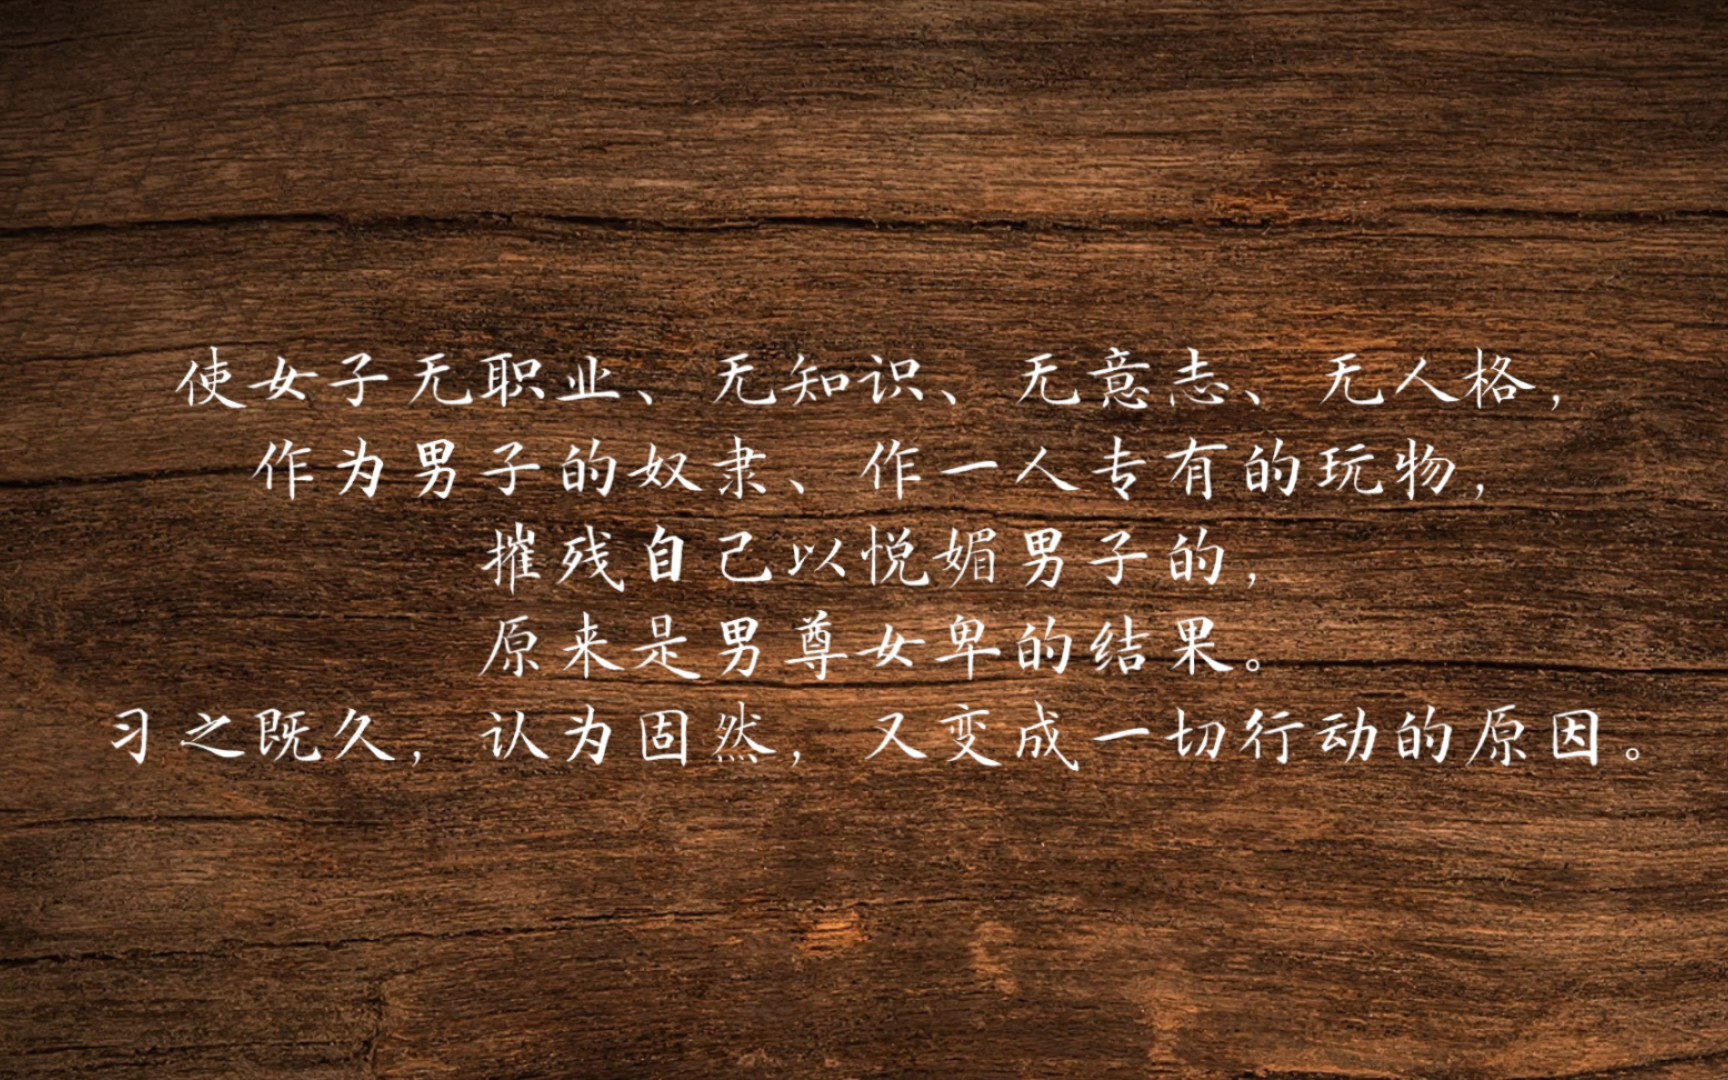 使女子无职业、无知识、无意志、无人格，
作为男子的奴隶、作一人专有的玩物，
摧残自己以悦媚男子的，
原来是男尊女卑的结果。
习之既久，认为固然，又变成一切行动的原因。